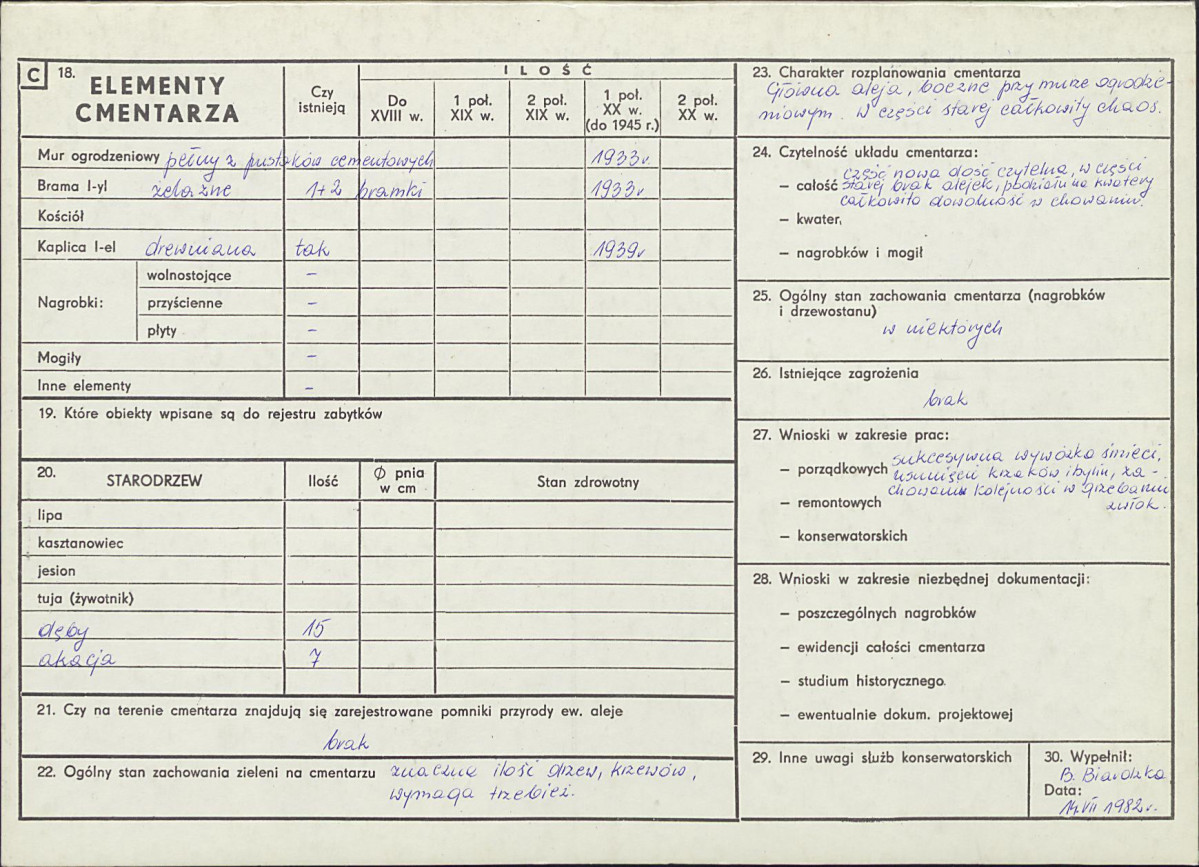 C 18. ELEMENTY CMENTARZA
Czy istnieją
I L O Ś Ć
Do XVIII w.
1 poł. XIX w.
2 poł. XIX w.
1 poł. XX w. (do 1945 r.)
2 poł. XX w.
Mur ogrodzeniowy pełny z pustaków cementowych 1933r.
Brama I-yl żelazne 1+2 bramki 1933r
Kościół
Kaplica I-el drewniana tak 1939r
Nagrobki:
wolnostojące –
przyścienne –
płyty –
Mogiły –
Inne elementy –
19. Które obiekty wpisane są do rejestru zabytków
20. STARODRZEW Ilość Ø pnia w cm Stan zdrowotny
lipa
kasztanowiec
jesion
tuja (żywotnik)
dęby 15
akacja 7
21. Czy na terenie cmentarza znajdują się zarejestrowane pomniki przyrody ew. aleje
brak
22. Ogólny stan zachowania zieleni na cmentarzu znaczna ilość drzew, krzewów,
wymaga trzebież.
23. Charakter rozplanowania cmentarza
Główna aleja, boczne przy murze ogrodze-
niowym. W części starej całkowity chaos.
24. Czytelność układu cmentarza:
część nowa dość czytelna, w części
– całość starej brak alejek, podziału na kwatery
całkowita dowolność w chowaniu.
– kwater,
– nagrobków i mogił
25. Ogólny stan zachowania cmentarza (nagrobków
i drzewostanu)
w niektórych
26. Istniejące zagrożenia
brak
27. Wnioski w zakresie prac:
sukcesywna wywózka śmieci,
– porządkowych usunięcie krzaków i bylin, za-
chowanie kolejności w grzebaniu
– remontowych zwłok.
– konserwatorskich
28. Wnioski w zakresie niezbędnej dokumentacji:
– poszczególnych nagrobków
– ewidencji całości cmentarza
– studium historycznego
– ewentualnie dokum. projektowej
29. Inne uwagi służb konserwatorskich
30. Wypełnił:
B.
Data:
14.VII 1982r.